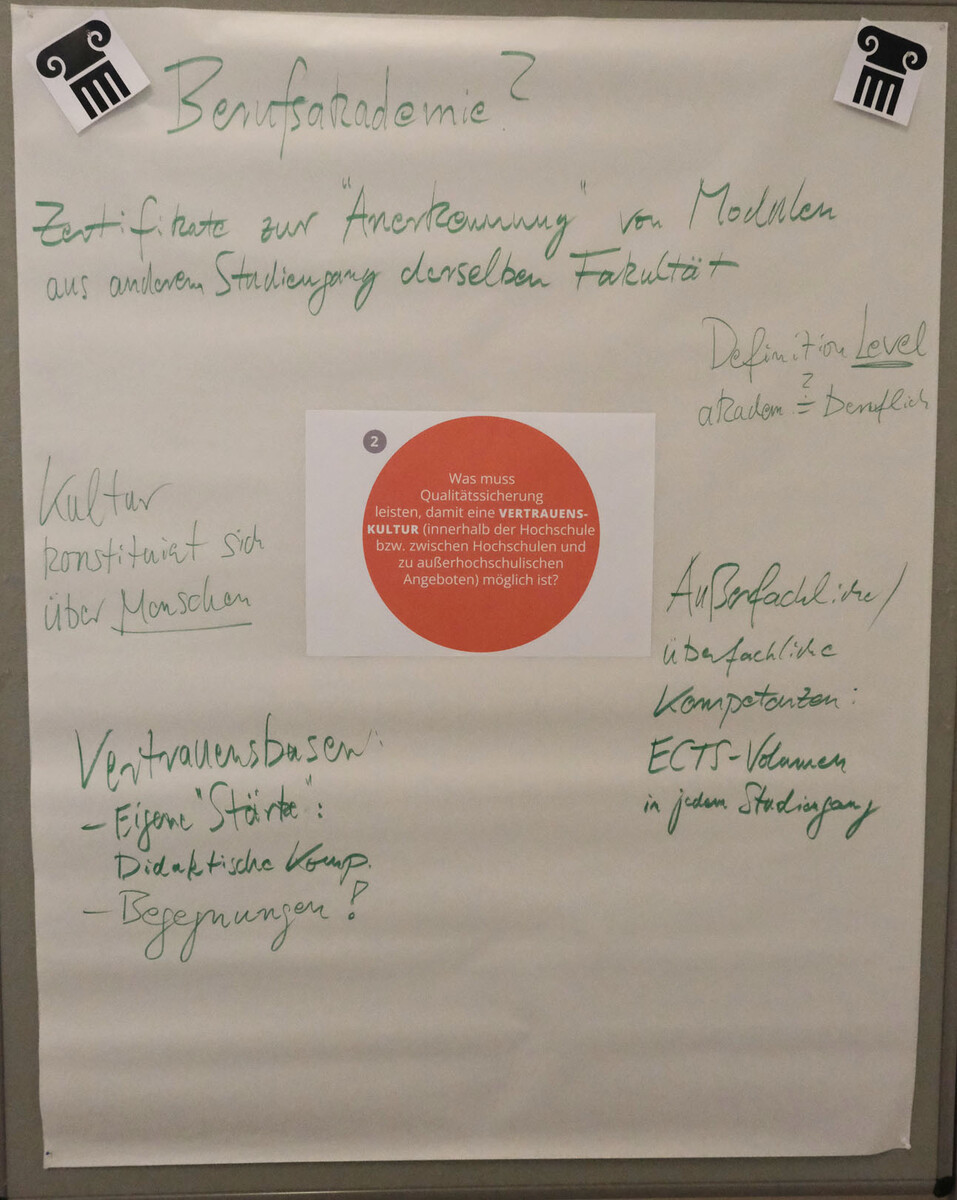 Berufsakademie?
Zertifikate zur "Anerkennung" von Modulen
aus anderem Studiengang derselben Fakultät
Definition Level
akadem ≟ beruflich
2
Was muss
Qualitätssicherung
leisten, damit eine VERTRAUENS-
KULTUR (innerhalb der Hochschule
bzw. zwischen Hochschulen und
zu außerhochschulischen
Angeboten) möglich ist?
Kultur
konstituiert sich
über Menschen
Außerfachliche/
überfachliche
Kompetenzen:
ECTS-Volumen
in jedem Studiengang
Vertrauensbasen:
- Eigene "Stärke":
Didaktische Komp.
- Begegnungen!